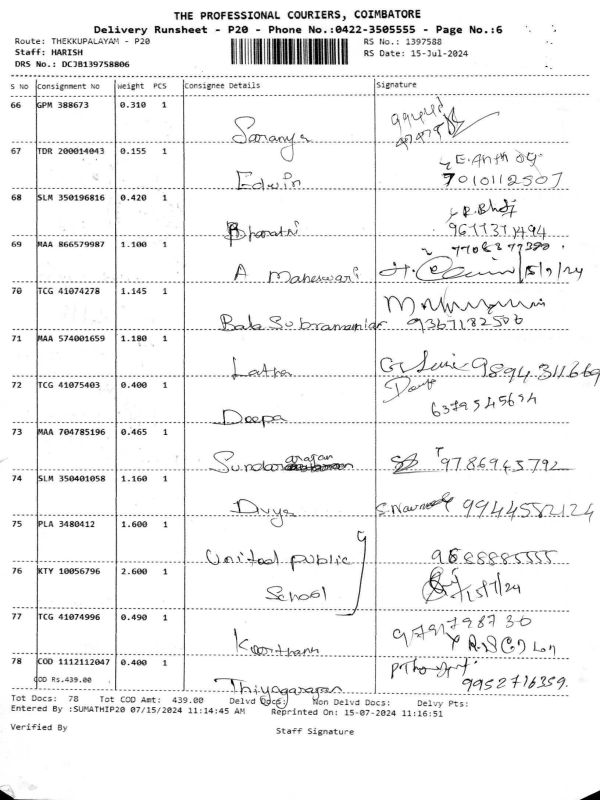 THE PROFESSIONAL COURIERS, COIMBATORE
Delivery Runsheet - P20 - Phone No.:0422-3505555 - Page No.:6
Route: THEKKUPALAYAM - P20 RS No.: 1397588
Staff: HARISH RS Date: 15-Jul-2024
DRS No.: DCJB139758806
S No Consignment No Weight PCS Consignee Details Signature
66 GPM 388673 0.310 1
Saranya
67 TDR 200014043 0.155 1 E. Anthony
Edwin 7010112507
68 SLM 350196816 0.420 1
Bharathi
69 MAA 866579987 1.100 1
A Maheswari 15/7/24
70 TCG 41074278 1.145 1
Bala Subramaniar 9367182500
71 MAA 574001659 1.180 1
Latha 9894311669
72 TCG 41075403 0.400 1
Deepa 6379545654
73 MAA 704785196 0.465 1
Sundararajan 9786945792
74 SLM 350401058 1.160 1
Divya 9944582124
75 PLA 3480412 1.600 1
United public
76 KTY 10056796 2.600 1
School 15/7/24
77 TCG 41074996 0.490 1 9791798730
78 COD 1112112047 0.400 1
COD Rs.439.00
Thiyagarajan 9952716359.
Tot Docs: 78 Tot COD Amt: 439.00 Delvd Docs: Non Delvd Docs: Delvy Pts:
Entered By :SUMATHIP20 07/15/2024 11:14:45 AM Reprinted On: 15-07-2024 11:16:51
Verified By Staff Signature